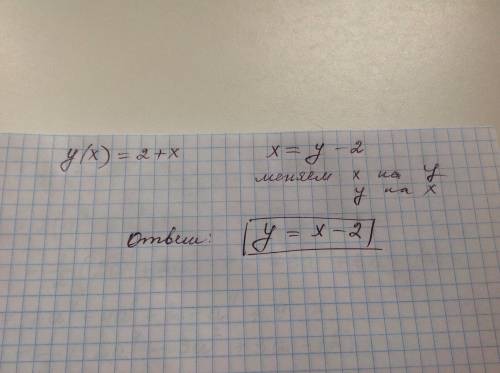 y(x) = 2+x
x = y - 2
меняем x на y
y на x
Ответ: y = x - 2